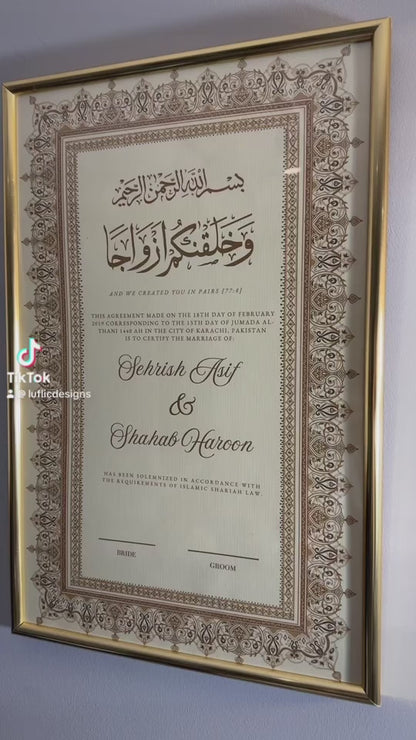 بسم الله الرحمن الرحيم
وَخَلَقْنَٰكُمْ أَزْوَاجًا
AND WE CREATED YOU IN PAIRS [77:8]
THIS AGREEMENT MADE ON THE 18TH DAY OF FEBRUARY
2019 CORRESPONDING TO THE 13TH DAY OF JUMADA AL-
THANI 1440 AH IN THE CITY OF KARACHI, PAKISTAN
IS TO CERTIFY THE MARRIAGE OF:
Sehrish Asif
&
Shahab Haroon
HAS BEEN SOLEMNIZED IN ACCORDANCE WITH
THE REQUIREMENTS OF ISLAMIC SHARIAH LAW.
BRIDE
GROOM
TikTok
@ luflicdesigns